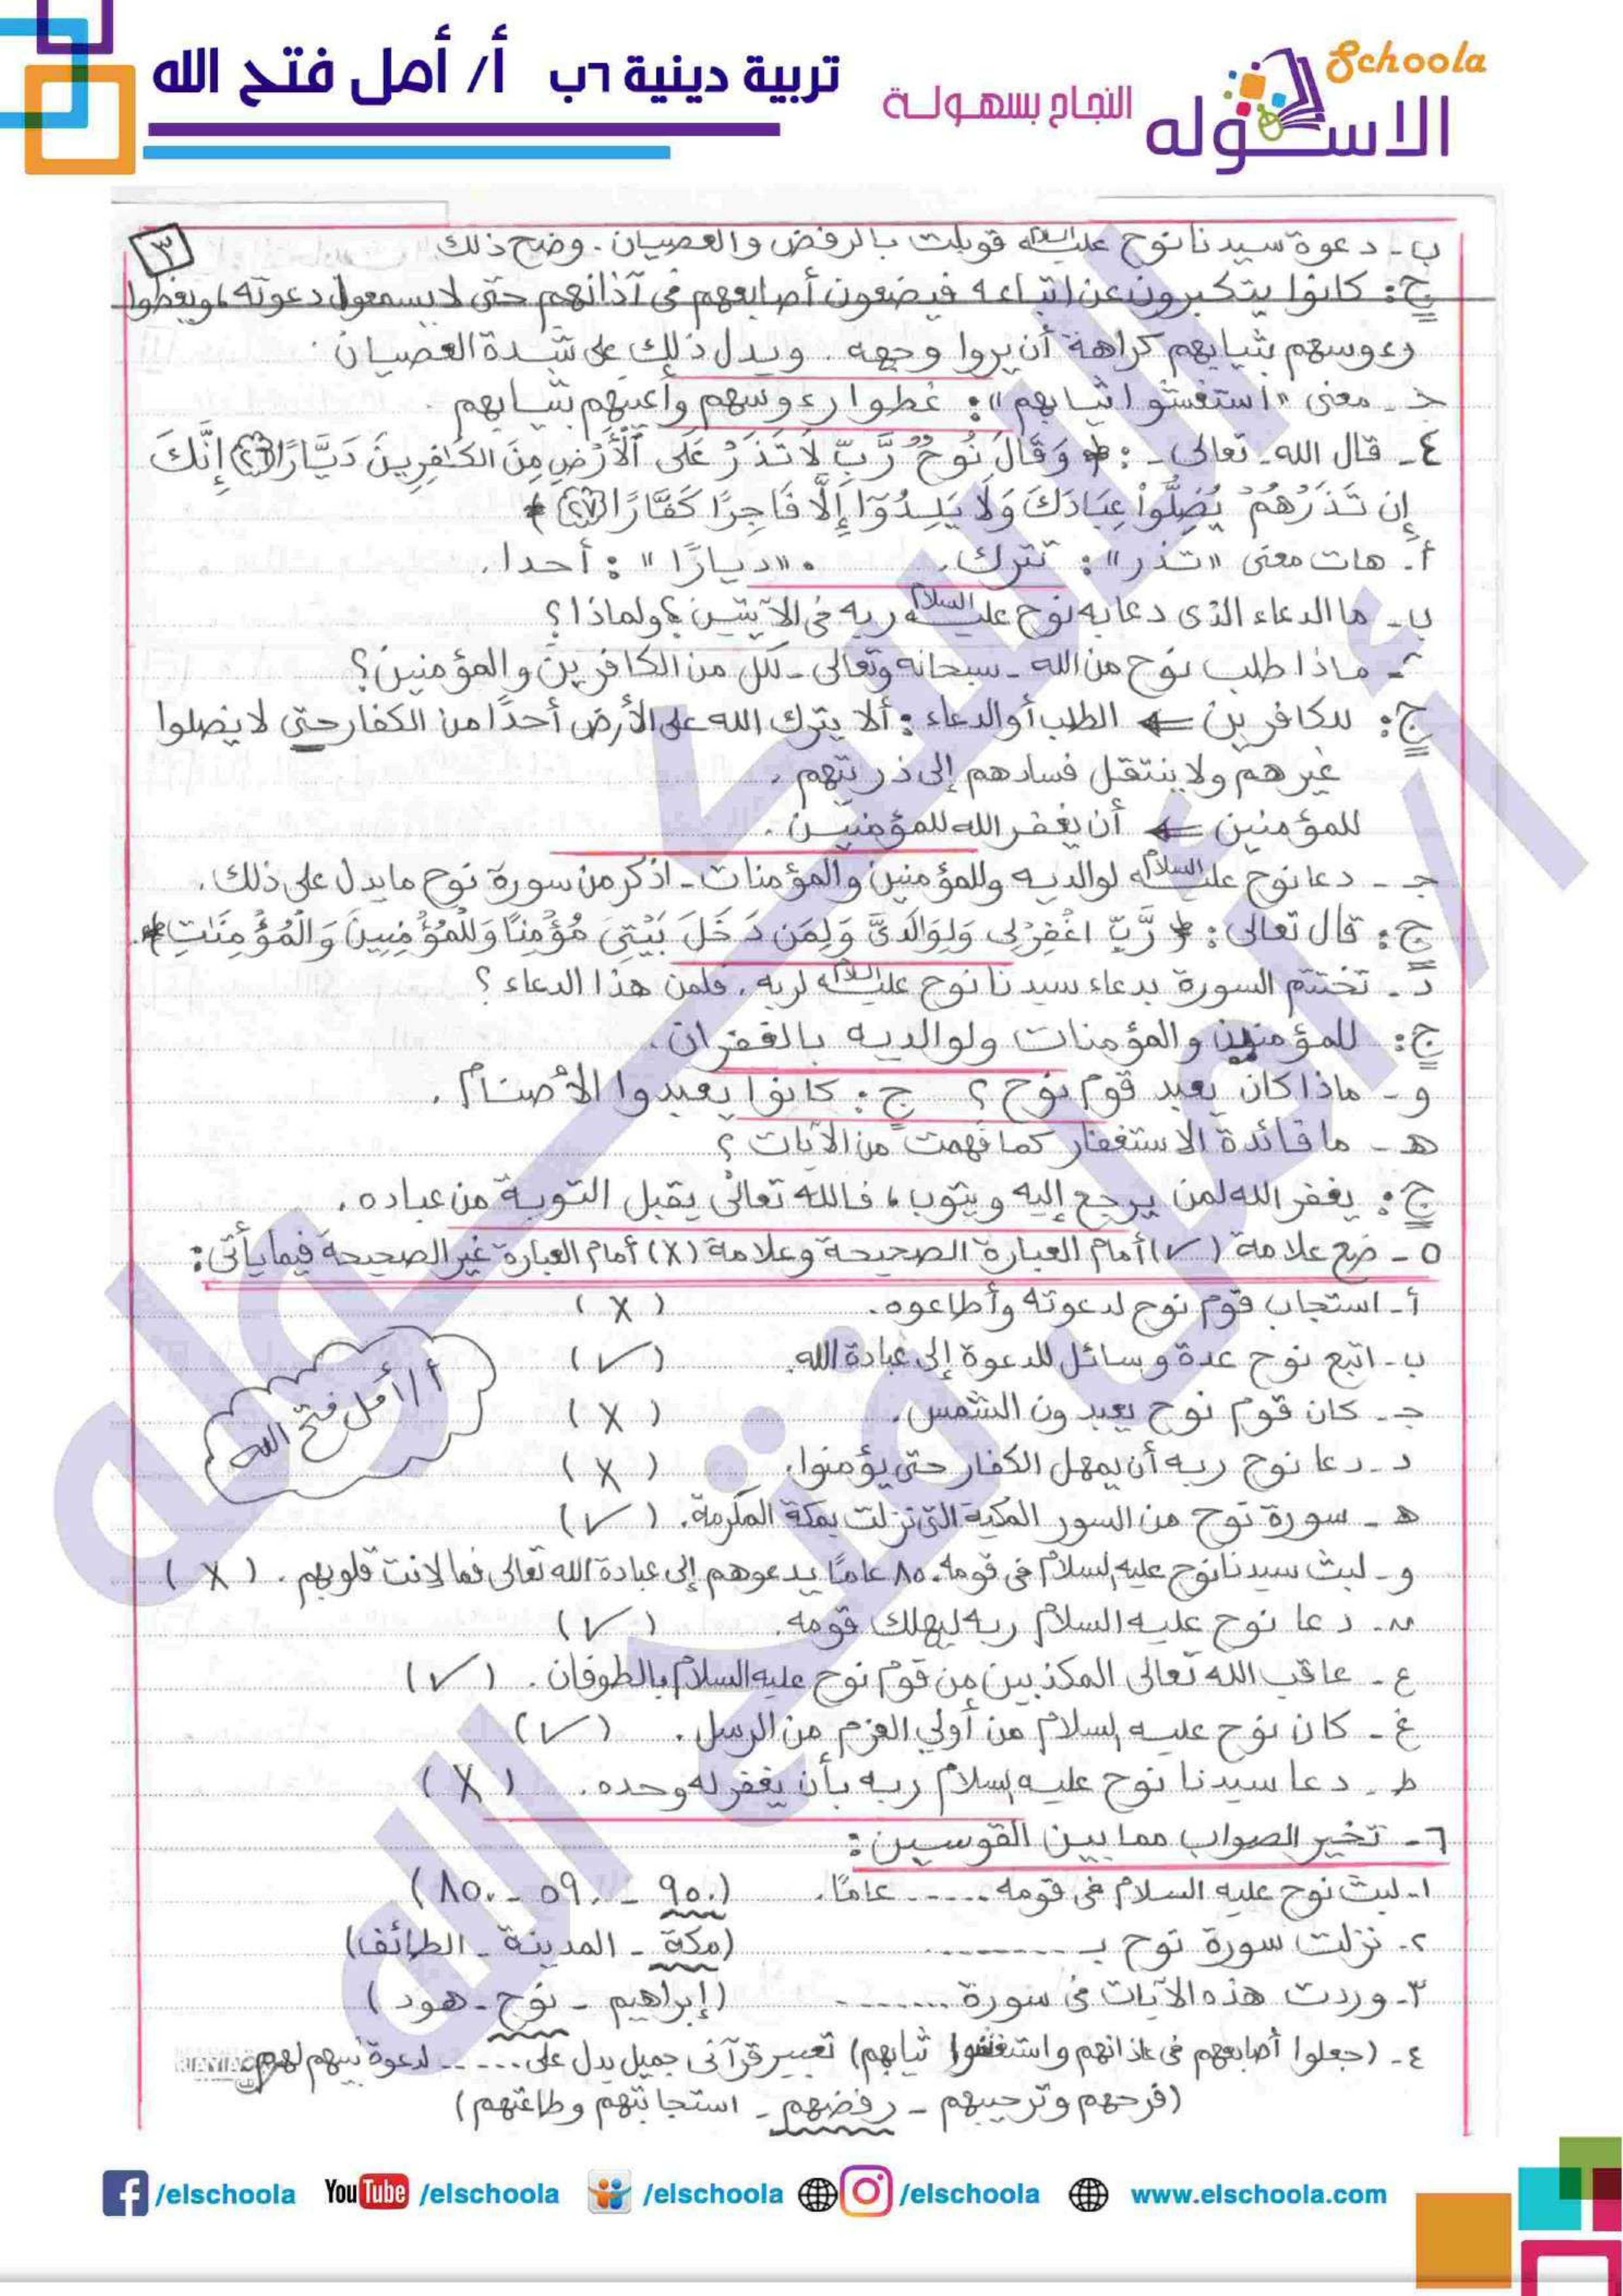 Schoola
الاسكوله
النجاح بسهولة
تربية دينية ٦ب أ/ أمل فتح الله
٣
ب- دعوة سيدنا نوح عليه السلام قوبلت بالرفض والعصيان. وضح ذلك
ج: كانوا يتكبرون عن اتباعه فيضعون أصابعهم فى آذانهم حتى لا يسمعوا دعوته، ويغطوا
رءوسهم بثيابهم كراهة أن يروا وجهه. ويدل ذلك على شدة العصيان.
جـ- معنى «استغشوا ثيابهم»: غطوا رءوسهم وأعينهم بثيابهم.
٤- قال الله- تعالى-: ﴿ وَقَالَ نُوحٌ رَّبِّ لَا تَذَرْ عَلَى ٱلْأَرْضِ مِنَ الكَافِرِينَ دَيَّارًا (٢٦) إِنَّكَ
إِن تَذَرْهُمْ يُضِلُّواْ عِبَادَكَ وَلَا يَلِدُوٓاْ إِلَّا فَاجِرًا كَفَّارًا (٢٧) ﴾
أ. هات معنى «تذر»: تترك. • «ديارًا»: أحدا.
ب- ما الدعاء الذى دعا به نوح عليه السلام ربه فى الآيتين؟ ولماذا؟
ء- ماذا طلب نوح من الله - سبحانه وتعالى - لكل من الكافرين والمؤمنين؟
ج: للكافرين ← الطلب أو الدعاء: ألا يترك الله على الأرض أحدًا من الكفار حتى لا يضلوا
غيرهم ولا ينتقل فسادهم إلى ذريتهم.
للمؤمنين ← أن يغفر الله للمؤمنين.
جـ- دعا نوح عليه السلام لوالديه وللمؤمنين والمؤمنات - اذكر من سورة نوح ما يدل على ذلك.
ج: قال تعالى: ﴿ رَّبِّ اغْفِرْ لِى وَلِوَالِدَىَّ وَلِمَن دَخَلَ بَيْتِىَ مُؤْمِنًا وَلِلْمُؤْمِنِينَ وَالْمُؤْمِنَاتِ ﴾.
د- تختتم السورة بدعاء سيدنا نوح عليه السلام لربه. فلمن هذا الدعاء؟
ج: للمؤمنين والمؤمنات ولوالديه بالغفران.
و- ماذا كان يعبد قوم نوح؟ ج: كانوا يعبدوا الأصنام.
هـ- ما فائدة الاستغفار كما فهمت من الآيات؟
ج: يغفر الله لمن يرجع إليه ويتوب، فالله تعالى يقبل التوبة من عباده.
٥- ضع علامة (✓) أمام العبارة الصحيحة وعلامة (X) أمام العبارة غير الصحيحة فيما يأتى:
أ- استجاب قوم نوح لدعوته وأطاعوه. (X)
ب- اتبع نوح عدة وسائل للدعوة إلى عبادة الله. (✓)
جـ- كان قوم نوح يعبدون الشمس. (X)
د- دعا نوح ربه أن يمهل الكفار حتى يؤمنوا. (X)
أ/ أمل فتح الله
هـ- سورة نوح من السور المكية التى نزلت بمكة المكرمة. (✓)
و- لبث سيدنا نوح عليه السلام فى قومه ٨٥٠ عامًا يدعوهم إلى عبادة الله تعالى فما لانت قلوبهم. (X)
س- دعا نوح عليه السلام ربه ليهلك قومه. (✓)
ع- عاقب الله تعالى المكذبين من قوم نوح عليه السلام بالطوفان. (✓)
غ- كان نوح عليه السلام من أولي العزم من الرسل. (✓)
ط- دعا سيدنا نوح عليه السلام ربه بأن يغفر له وحده. (X)
٦- تخير الصواب مما بين القوسين:
١- لبث نوح عليه السلام فى قومه ...... عامًا. (٩٥٠ - ٥٩٠ - ٨٥٠)
٢- نزلت سورة نوح بـ ........ (مكة - المدينة - الطائف)
٣- وردت هذه الآيات فى سورة ........ (إبراهيم - نوح - هود)
٤- (جعلوا أصابعهم فى ءاذانهم واستغشوا ثيابهم) تعبير قرآنى جميل يدل على ...... لدعوة نبيهم لهم.
(فرحهم وترحيبهم - رفضهم - استجابتهم وطاعتهم)
الاسكوله
أ/ أمل فتح الله
/elschoola YouTube /elschoola /elschoola /elschoola www.elschoola.com